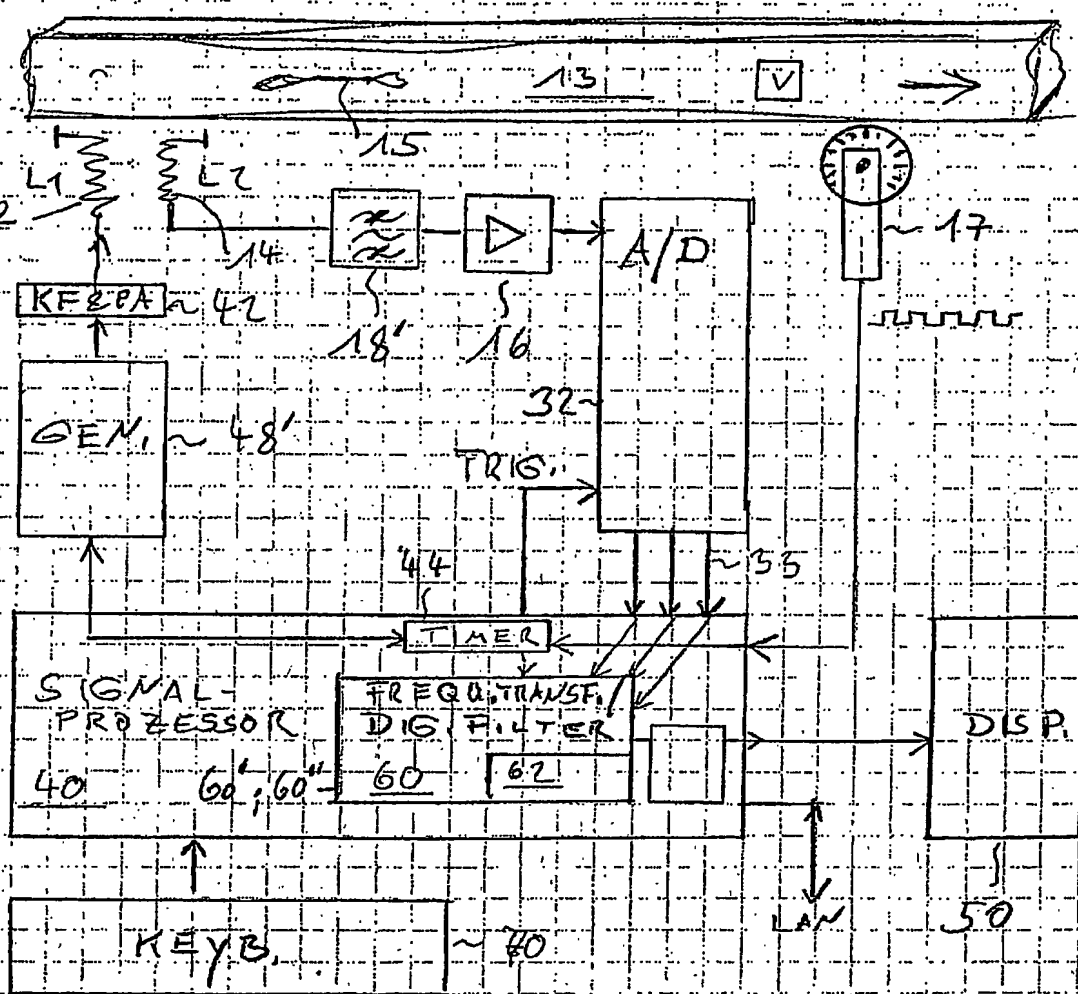 13
V
15
L1
L2
2
14
42
18'
16
A/D
17
GEN.
48'
32
TRIG.
44
33
TIMER
SIGNAL-
PROZESSOR
40
FREQU.TRANSF./
DIG. FILTER
60
62
60'; 60"
DISP.
50
LAN
KEYB.